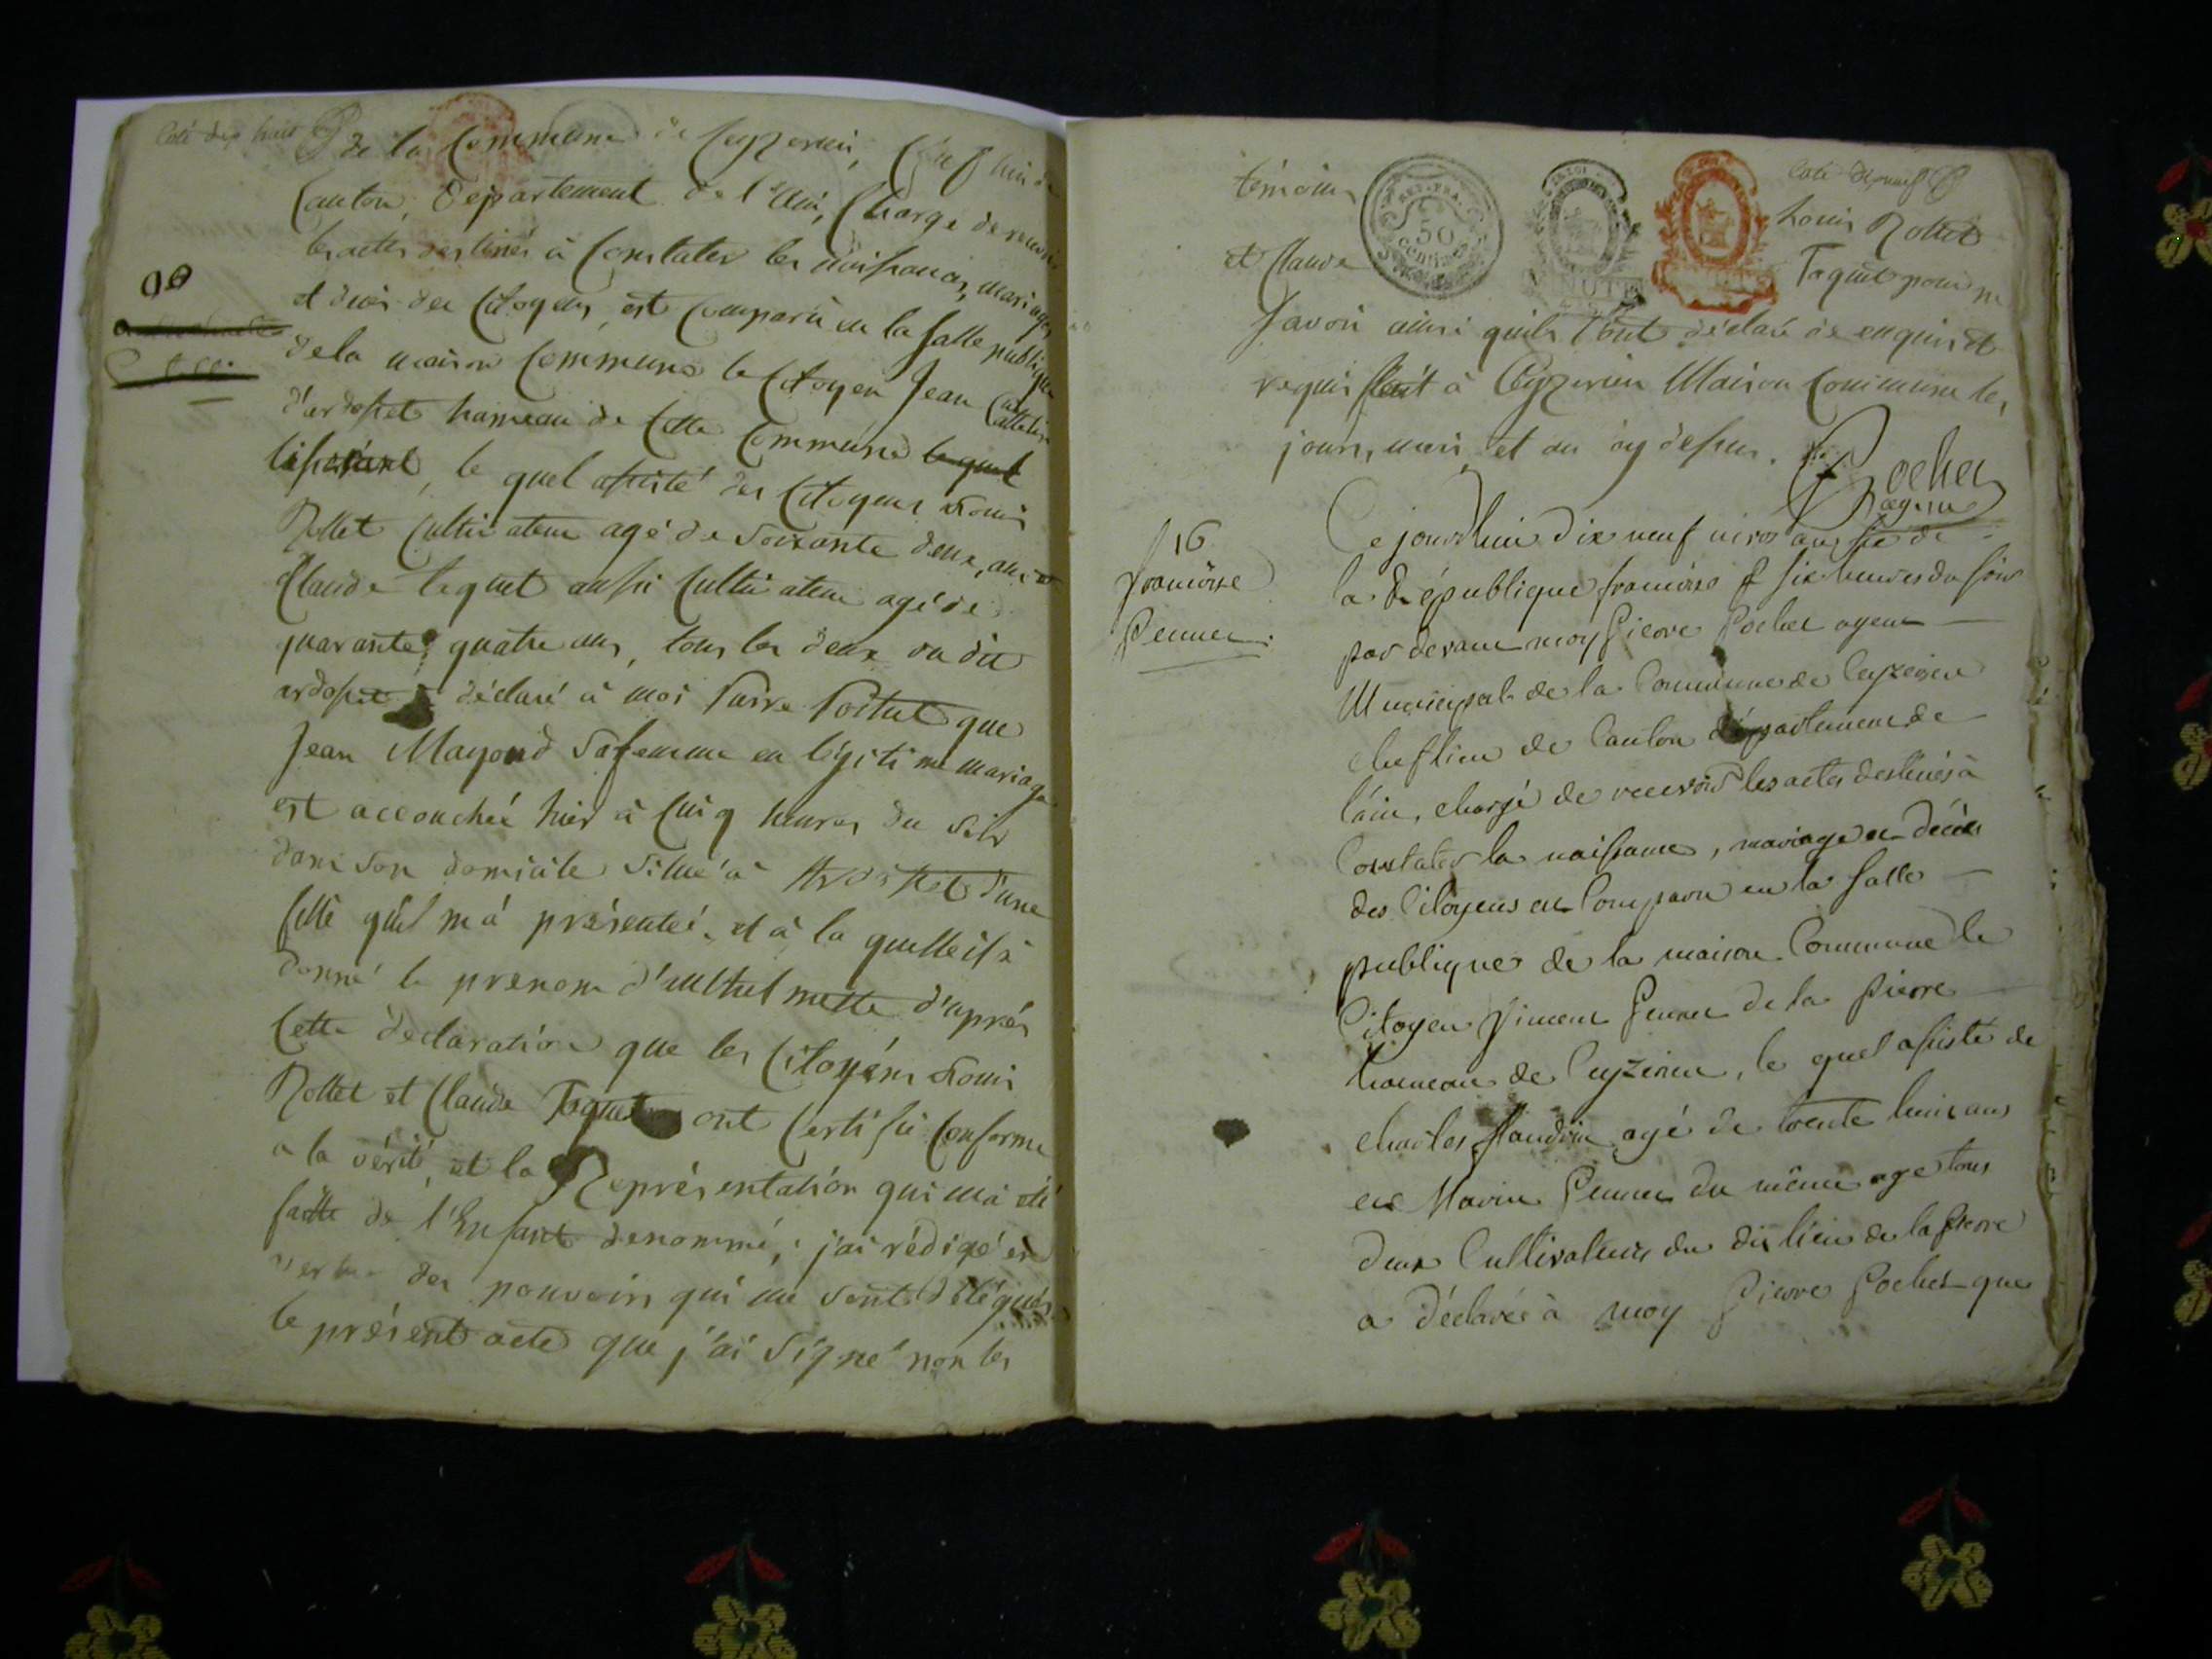 Coté dix huit
de la Commune de Ceyzerieu, Chef lieu de
Canton, Département de l'Ain, Chargé de recevoir
les actes destinés à Constater les naissances, mariages
et décès des Citoyens, est Comparu en la salle publique
de la maison Commune le Citoyen Jean
d'ardosset hameau de Cette Commune le quel
le quel assisté des Citoyens Louis
Rottet Cultivateur agé de soixante deux ans et
Claude Toquet aussi Cultivateur agé de
quarante quatre ans, tous les deux du dit
ardosset à déclaré à moi Pierre Pochet que
Jean Mayond Sa femme en légitime mariage
est accouchée hier à Cinq heures du Soir
dans son domicile Situé à Ardosset d'une
fille qu'il m'a présenté, et à la quelle il à
donné le prenom d' d'après
Cette déclaration que les Citoyens Louis
Rottet et Claude Toquet ont Certifié Conforme
a la vérité, et la Représentation qui m'a été
faitte de l'Enfant denommé, j'ai rédigé en
vertu des pouvoirs qui me sont délégués
le présent acte que j'ai Signé non les
Coté dix neuf
témoins Louis Rottet
et Claude Toquet pour ne
REP. FRA.
50
centimes
MINUTE
savoir ainsi quils l'ont déclaré de enquis et
requis fait à Ceyzerieu Maison Commune les
jours, mois, et an cy dessus.
Pochet
agent
16
françoise
Pennet
Ce jourdhui dix neuf nivos an de
la République françoise à six heures du soir
par devant moy Pierre Pochet agent
Municipal de la Commune de Ceyzerieu
chef lieu de Canton département de
l'ain, chargé de recevoir les actes destinés à
Constater la naissance, mariage et décès
des Citoyens est Comparu en la salle
publique de la maison Commune le
Citoyen Vincent Pennet de la pierre
hameau de Ceyzerieu, le quel assisté de
charles agé de trente huit ans
et Marin Pennet du même age tous
deux Cultivateurs du dit lieu de la pierre
a déclaré à moy Pierre Pochet que